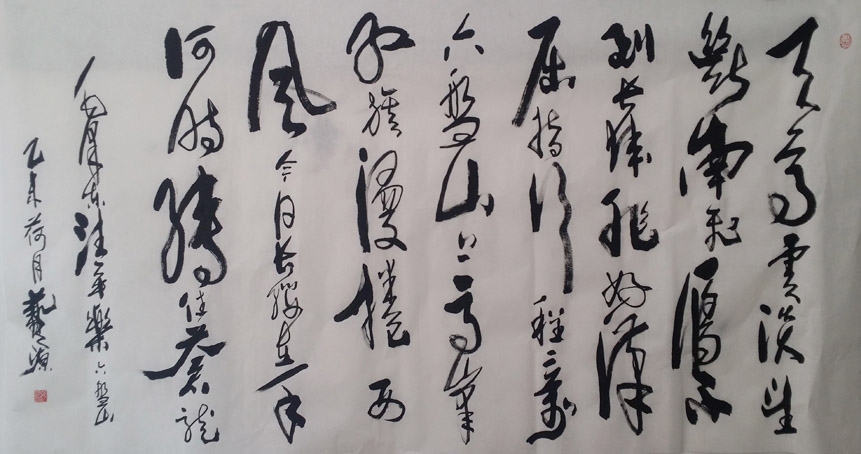 天高雲淡望
斷南飛雁不
到長城非好漢
屈指行程二萬
六盤山上高峰
紅旗漫捲西
風今日長纓在手
何時縛住蒼龍
毛澤东清平樂六盤山
乙未荷月藝源